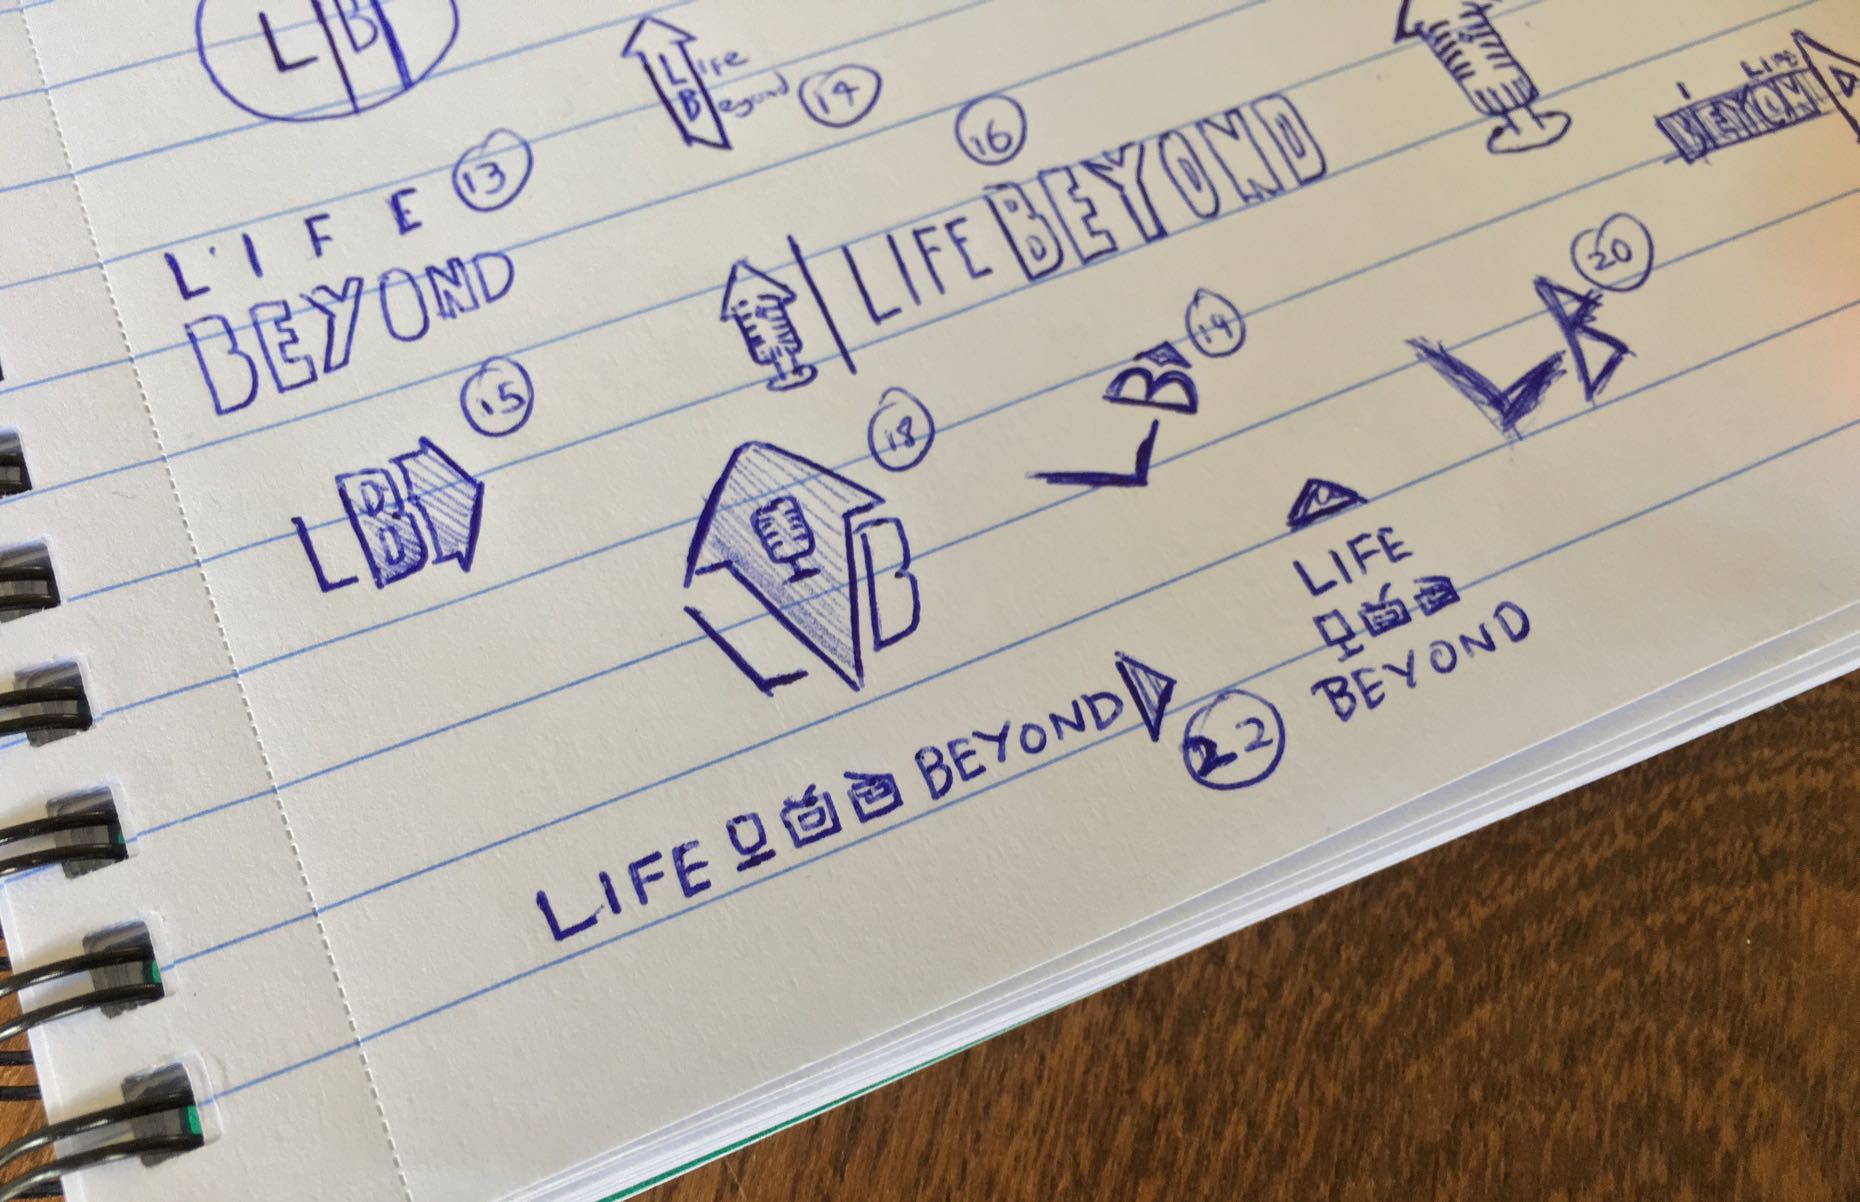 LB
Life
Beyond
14
LIFE
BEYOND
13
16
LIFE BEYOND
LIFE
BEYOND
LB
15
LB
18
LB
19
LB
20
LIFE
BEYOND
LIFE BEYOND
22